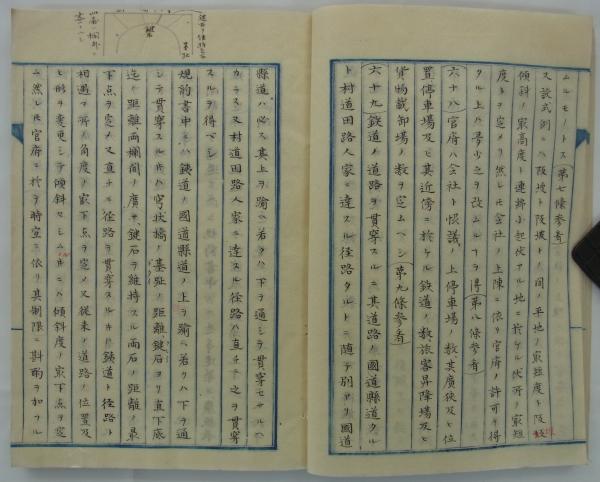 ムルモノトス(第七條參看)
又設式例ニハ阪坡ト阪坡トノ間ノ平地ノ最短度ト阪
傾斜ノ最高度ト連綿小起伏アル地ニ於ケル伏所ノ最短
度トヲ定メリ然レヒ會社ノ上陳ニ依リ官府ノ許可ヲ得
タル上ハ多少之ヲ改ムルヿヲ得(第八條參看)
六十八官府ハ會社ト恊議ノ上停車場ノ數其廣狹及ヒ位
置停車場及ヒ其近傍ニ於ケル鉄道ノ數旅客昇降場及ヒ
貨物載卸場ノ數ヲ定ムヘシ(第九條參看)
六十九鉄道ノ道路ヲ貫穿スルニ其道路ノ國道縣道タル
ト村道田路人家ニ達スル径路タルトニ隨テ別アリ國道
縣道ハ必ス其上ヲ踰ヘ若クハ下ヲ通シテ貫穿セサルヘ
カラス又村道田路人家ニ達スル径路ハ直チニ之ヲ貫穿
スルヿヲ得ヘシ
規約書中ニハ鉄道ノ國道縣道ノ上ヲ踰ヘ若クハ下ヲ通
シテ貫穿スルトキハ穹状橋基趾ノ距離鍵石ヨリ直下底
迄ノ距離兩欄間ノ廣サ鍵石ヲ維持スル兩石ノ距離ノ最
下点ヲ定メ又直チニ径路ヲ貫穿スルトキハ鉄道ト径路ト
相遇フ所ノ角度ノ最下点ヲ定メ又從来ノ道路ノ位置及
ヒ形ヲ変更シテ傾斜セシムルトキニハ傾斜度ノ最下点ヲ定
ム然レヒ官府ニ於テ時宜ニ依リ其制限ニ斟酌ヲ加フル
鍵
基趾